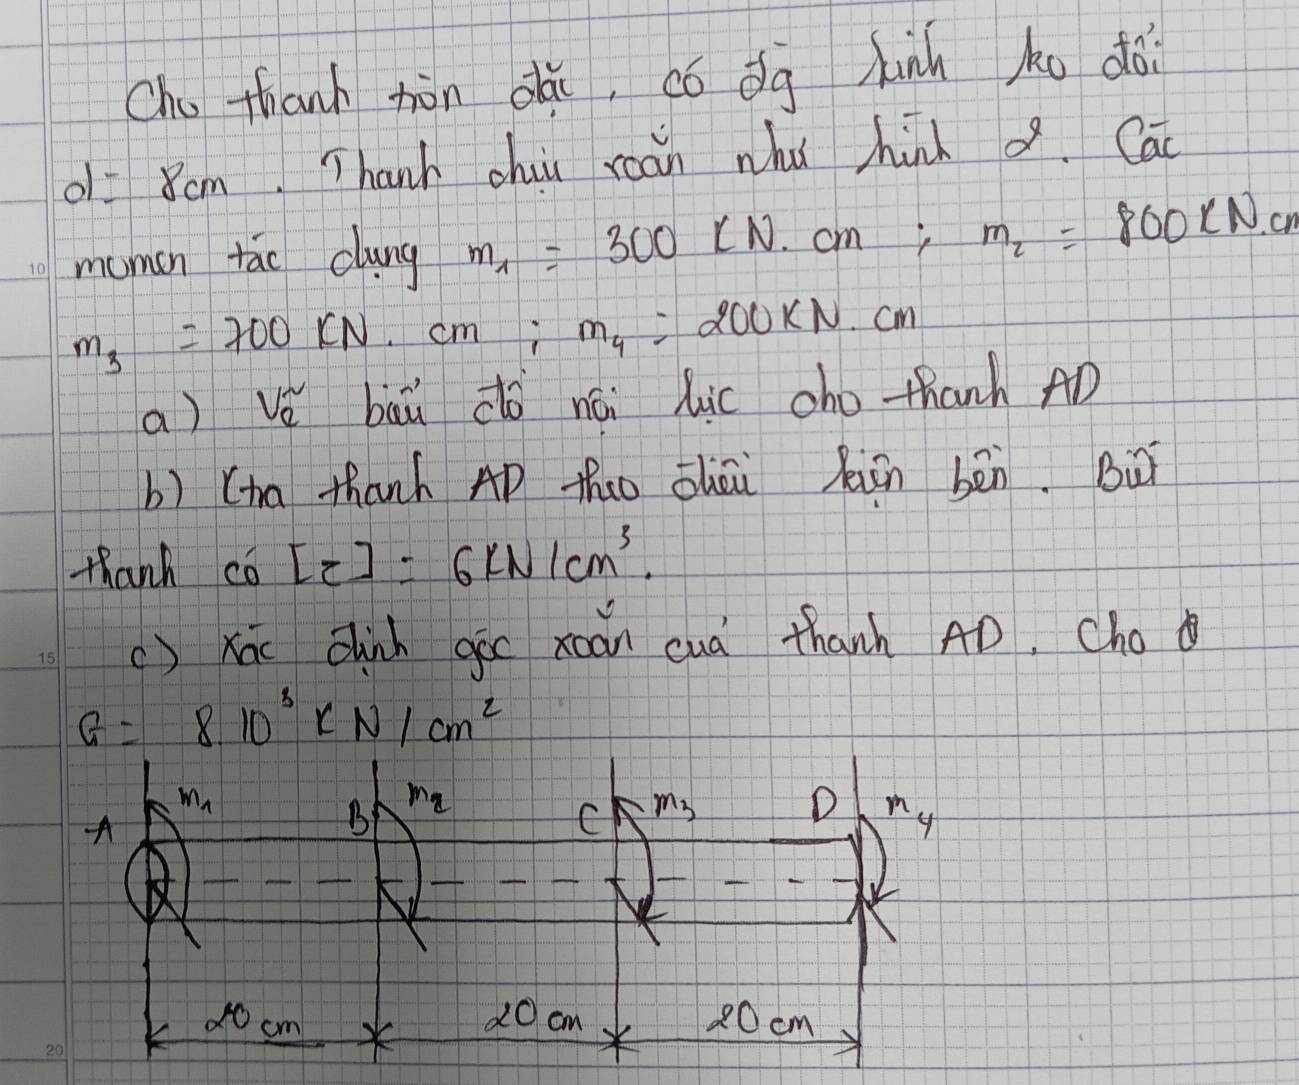 Cho thanh tròn đặc, có đg kính ko đổi
d = 8cm. Thanh chịu xoắn như hình 2. Các
momen tác dụng m₁ = 300 KN.cm ; m₂ = 800KN.cm
m₃ = 700 KN.cm ; m₄ = 200KN.cm
a) Vẽ biểu đồ nội lực cho thanh AD
b) Ktra thanh AD theo điều kiện bền. Biết
thanh có [τ] = 6KN/cm³.
c) Xác định góc xoắn của thanh AD. Cho
G = 8.10³ KN/cm²
A m₁ B m₂ C m₃ D m₄
20 cm 20 cm 20 cm
10
15
20